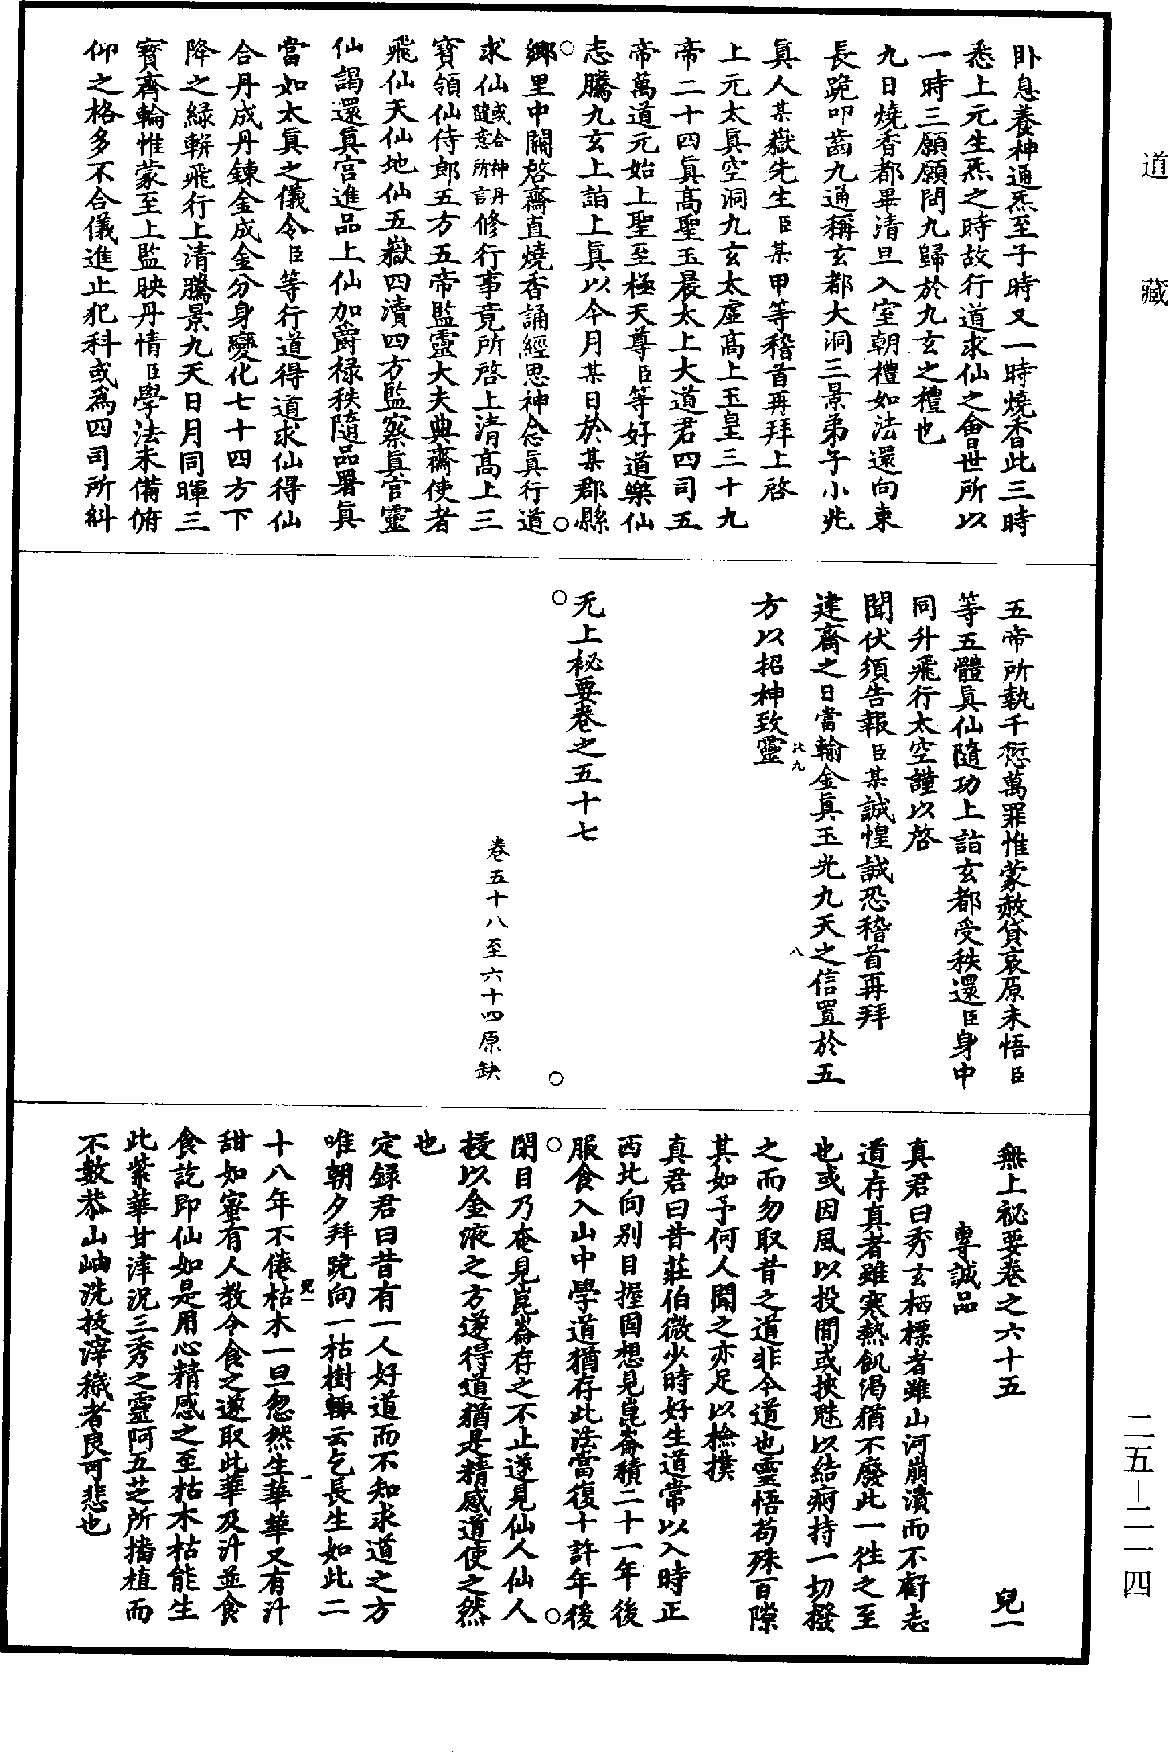 道藏
卧息養神通炁至子時又一時燒香此三時
悉上元生炁之時故行道求仙之會世所以
一時三願願問九歸於九玄之禮也
九日燒香都畢清旦入室朝禮如法還向東
長跪叩齒九通稱玄都大洞三景弟子小兆
真人某嶽先生臣某甲等稽首再拜上啓
上元太真空洞九玄太虛高上玉皇三十九
帝二十四真高聖玉晨太上大道君四司五
帝萬道元始上聖至極天尊臣等好道樂仙
志騰九玄上詣上真以今月某日於某郡縣
鄉里中關啓齋直燒香誦經思神念真行道
求仙或合神丹隨意所言修行事竟所啓上清高上三
寶領仙侍郎五方五帝監靈大夫典齋使者
飛仙天仙地仙五嶽四瀆四方監察真官靈
仙謁還真宮進品上仙加爵禄秩隨品署真
當如太真之儀令臣等行道得道求仙得仙
合丹成丹鍊金成金分身變化七十四方下
降之緑軿飛行上清騰景九天日月同暉三
寶齊輪惟蒙至上監映丹情臣學法未備俯
仰之格多不合儀進止犯科或爲四司所糾
五帝所執千愆萬罪惟蒙赦貸哀原未悟臣
等五體真仙隨功上詣玄都受秩還臣身中
同升飛行太空謹以啓
聞伏須告報臣某誠惶誠恐稽首再拜
建齋之日當輸金真玉光九天之信置於五
方以招神致靈
无上秘要卷之五十七
卷五十八至六十四原缺
無上祕要卷之六十五 兒一
專誠品
真君曰秀玄栖標者雖山河崩潰而不䦨志
道存真者雖寒熱飢渴猶不廢此一往之至
也或因風以投間或挾魅以結痾持一切撥
之而勿取昔之道非今道也靈悟苟殊百隙
其如予何人聞之亦足以檢撲
真君曰昔莊伯微少時好生道常以入時正
西北向别目握固想見崑崙積二十一年後
服食入山中學道猶存此法當復十許年後
閉目乃奄見崑崙存之不止遂見仙人仙人
授以金液之方遂得道猶是精感道使之然
也
定録君曰昔有一人好道而不知求道之方
唯朝夕拜跪向一枯樹輒云乞長生如此二
十八年不倦枯木一旦忽然生華華又有汁
甜如蜜有人教令食之遂取此華及汁並食
食訖即仙如是用心精感之至枯木枯能生
此紫華甘津況三秀之靈阿五芝所播植而
不數恭山岫洗拔滓穢者良可悲也
二五—二一四